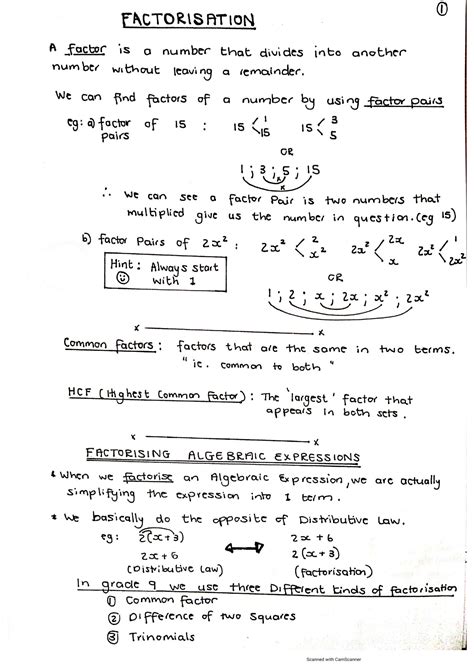 FACTORISATION
①
A factor is a number that divides into another
number without leaving a remainder.
We can find factors of a number by using factor pairs
eg: a) factor of 15 : 15 < 1 15 < 3
pairs 15 5
OR
1 ; 3 ; 5 ; 15
x
x
∴ we can see a factor Pair is two numbers that
multiplied give us the number in question. (eg 15)
b) factor Pairs of 2x² : 2x² < 2 2x² < 2x 2x² < 1
x² x 2x²
Hint: Always start
with 1
OR
1 ; 2 ; x ; 2x ; x² ; 2x²
x x
Common factors : factors that are the same in two terms.
" ie. common to both "
HCF (Highest Common Factor) : The 'largest' factor that
appears in both sets.
x x
FACTORISING ALGEBRAIC EXPRESSIONS
* When we factorise an Algebraic Expression, we are actually
simplifying the expression into 1 term.
* We basically do the opposite of Distributive Law.
eg: 2(x+3) 2x + 6
2x + 6 2(x+3)
(Distributive Law) (factorisation)
In grade 9 we use three Different kinds of factorisation
① Common factor
② Difference of two Squares
③ Trinomials
Scanned with CamScanner